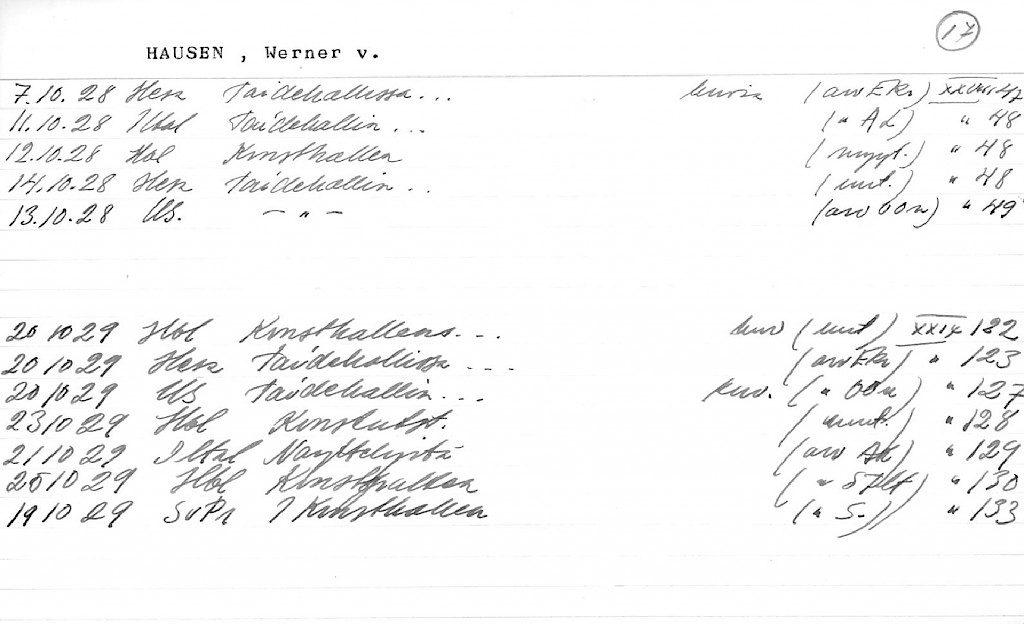 17
HAUSEN , Werner v.
7.10.28 Hesa Taidehallissa... kuvia (arv EKr) XXVIII 47
11.10.28 Iltal Taidehallin... (" AL) " 48
12.10.28 Hbl Konsthallen (nyyt.) " 48
14.10.28 Hesa Taidehallin.. (mnt.) " 48
13.10.28 US. — " — (arv OOn) " 49
20 10 29 Hbl Konsthallens... kuv (mnt) XXIX 122
20 10 29 Hesa Taidehallissa.... (arv EKr) " 123
20 10 29 US Taidehallin... kuv. (" OOn) " 127
23 10 29 Hbl Konstutst. (mnt.) " 128
21 10 29 Iltal Näyttelyitä (arv) " 129
25 10 29 Hbl Konsthallen (" ) " 130
19 10 29 SvPr I Konsthallen (" S.) " 133